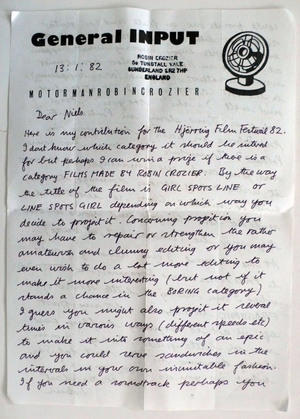 General INPUT
13.1.82
ROBIN CROZIER
5a TUNSTALL VALE
SUNDERLAND SR2 7HP
ENGLAND
MOTORMANROBINCROZIER
Dear Niels
Here is my contribution for the Hjørring Film Festival 82.
I don't know which category it should be entered
for but perhaps I can win a prize if there is a
category FILMS MADE BY ROBIN CROZIER. By the way
the title of the film is GIRL SPOTS LINE or
LINE SPOTS GIRL depending on which way you
decide to project it. Concerning projection you
may have to repair or strengthen the rather
amateurish and clumsy editing or you may
even wish to do a lot more editing to
make it more interesting (but not if it
stands a chance in the BORING category)
I guess you might also project it several
times in various ways (different speeds etc)
to make it into something of an epic
and you could serve sandwiches in the
intervals in your own inimitable fashion.
If you need a soundtrack perhaps you